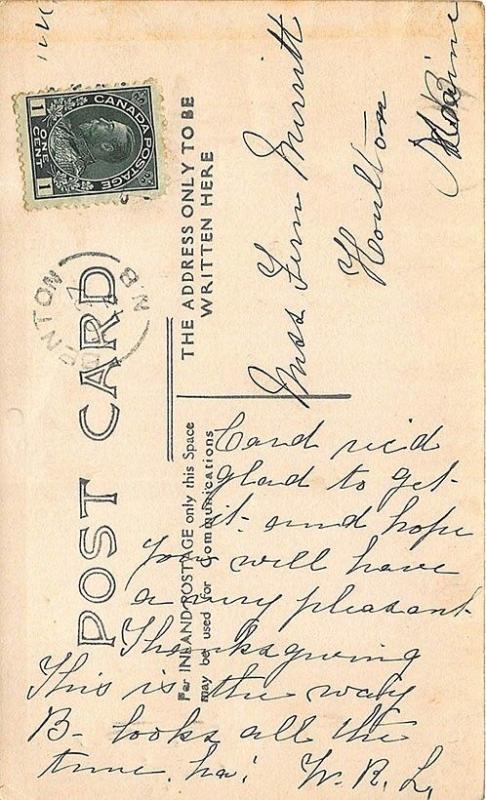 CANADA POSTAGE
1 ONE CENT 1
BENTON
N.B.
POST CARD
THE ADDRESS ONLY TO BE
WRITTEN HERE
For INLAND POSTAGE only this Space
may be used for Communications
Miss Fern Merritt
Houlton
Maine
Card rec'd
glad to get
it. and hope
you will have
a very pleasant
Thanksgiving
This is the way
B- looks all the
time. ha! W. R. L.